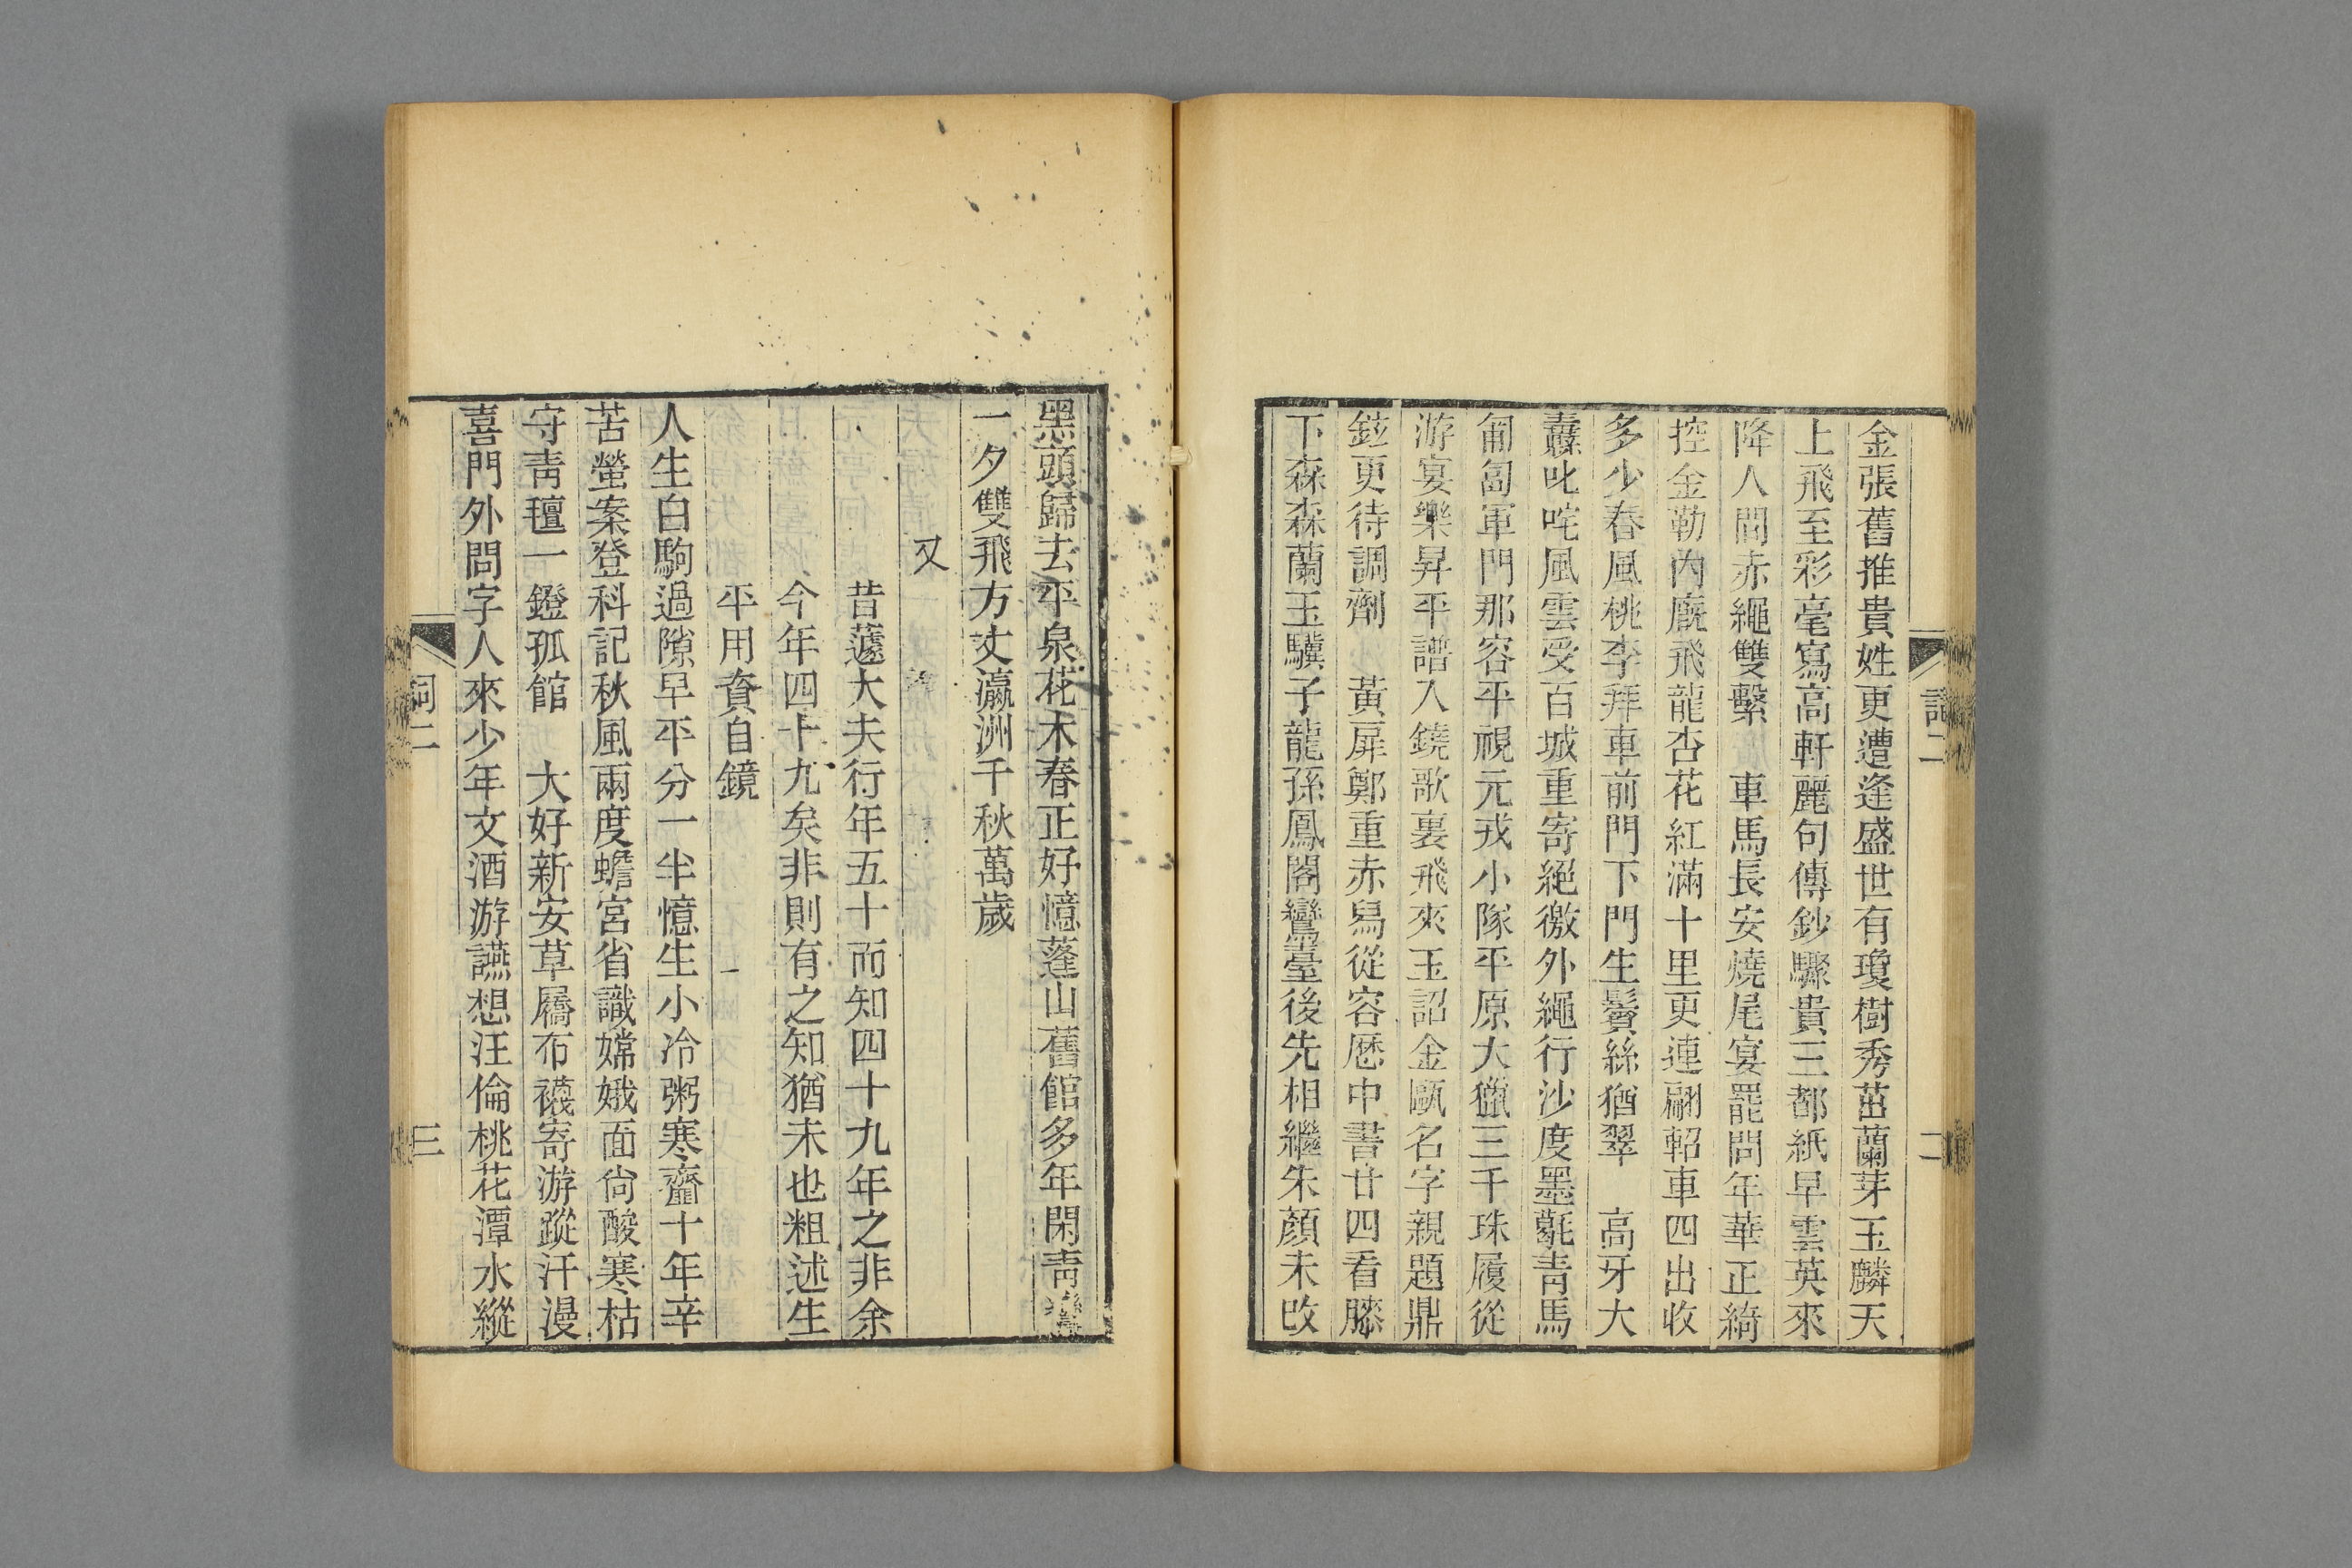 金張舊推貴姓更遭逢盛世有瓊樹秀茁蘭芽玉麟天
上飛至彩毫寫高軒麗句傳鈔驟貴三都紙早雲英來
降人間赤繩雙繫　車馬長安燒尾宴罷問年華正綺
控金勒內廄飛龍杏花紅滿十里更連翩軺車四出收
多少春風桃李拜車前門下門生鬢絲猶翠　高牙大
纛叱咤風雲受百城重寄絕徼外繩行沙度墨氈青馬
匍匐軍門那容平視元戎小隊平原大獵三千珠履從
游宴樂昇平譜入鐃歌裏飛來玉詔金甌名字親題鼎
鉉更待調劑　黃扉鄭重赤舄從容歷中書廿四看膝
下森森蘭玉驥子龍孫鳳閣鸞臺後先相繼朱顏未改
詞二
二
黑頭歸去平泉花木春正好憶蓬山舊館多年閑青鸞
一夕雙飛方丈瀛洲千秋萬歲
又
昔蘧大夫行年五十而知四十九年之非余
今年四十九矣非則有之知猶未也粗述生
平用資自鏡
人生白駒過隙早平分一半憶生小冷粥寒齏十年辛
苦螢案登科記秋風兩度蟾宮省識嫦娥面尚酸寒枯
守青氊一鐙孤館　大好新安草屩布襪寄游蹤汗漫
喜門外問字人來少年文酒游讌想汪倫桃花潭水縱
詞二
三